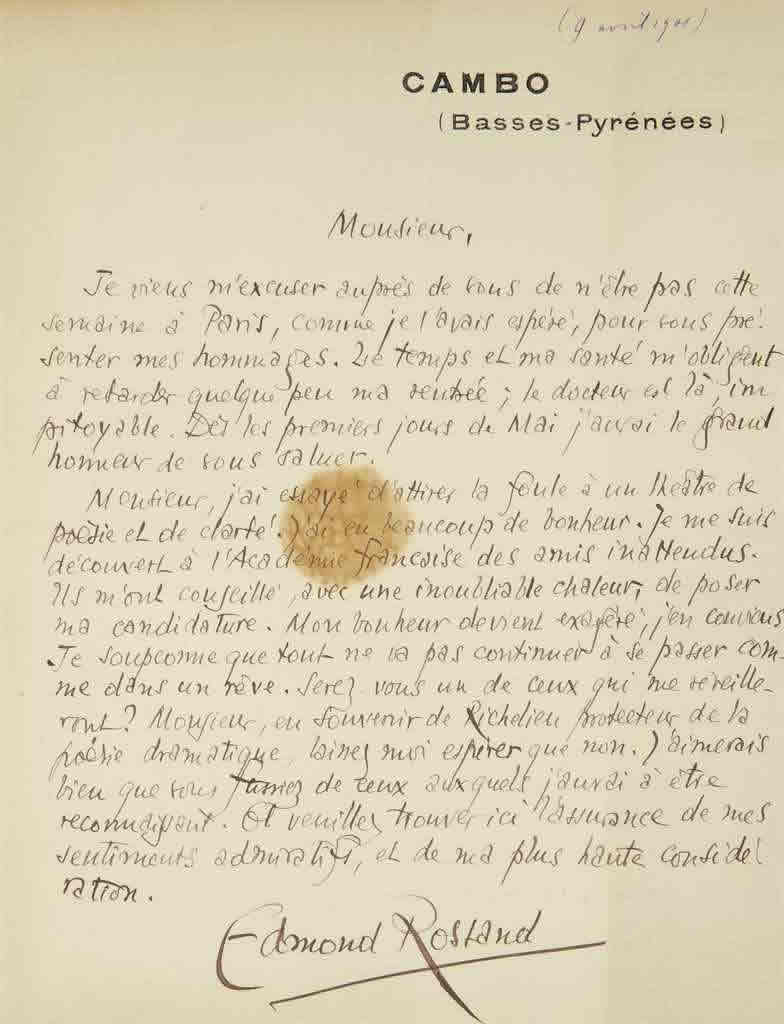 (9 avril 1901)
CAMBO
(Basses-Pyrénées)
Monsieur,
Je viens m'excuser auprès de vous de n'être pas cette
semaine à Paris, comme je l'avais espéré, pour vous pré-
senter mes hommages. Le temps et ma santé m'obligent
à retarder quelque peu ma rentrée ; le docteur est là, im
pitoyable. Dès les premiers jours de Mai j'aurai le grand
honneur de vous saluer.
Monsieur, j'ai essayé d'attirer la foule à un théâtre de
poésie et de clarté. J'ai eu beaucoup de bonheur. Je me suis
découvert à l'Académie française des amis inattendus.
Ils m'ont conseillé, avec une inoubliable chaleur, de poser
ma candidature. Mon bonheur devient exagéré, j'en conviens.
Je soupçonne que tout ne va pas continuer à se passer com-
me dans un rêve. Serez vous un de ceux qui me réveille-
ront ? Monsieur, en souvenir de Richelieu protecteur de la
poésie dramatique, laissez moi espérer que non. J'aimerais
bien que vous fussiez de ceux auxquels j'aurai à être
reconnaissant. Et veuillez trouver ici l'assurance de mes
sentiments admiratifs, et de ma plus haute considé
ration.
Edmond Rostand